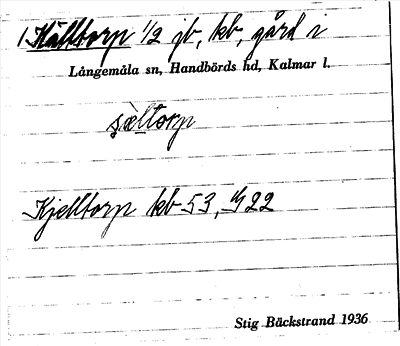 1 Källtorp 1/2 jb, kb, gård i
Långemåla sn, Handbörds hd, Kalmar l.
sæltorp
Kjelltorp kb 53, 1922
Stig Bäckstrand 1936